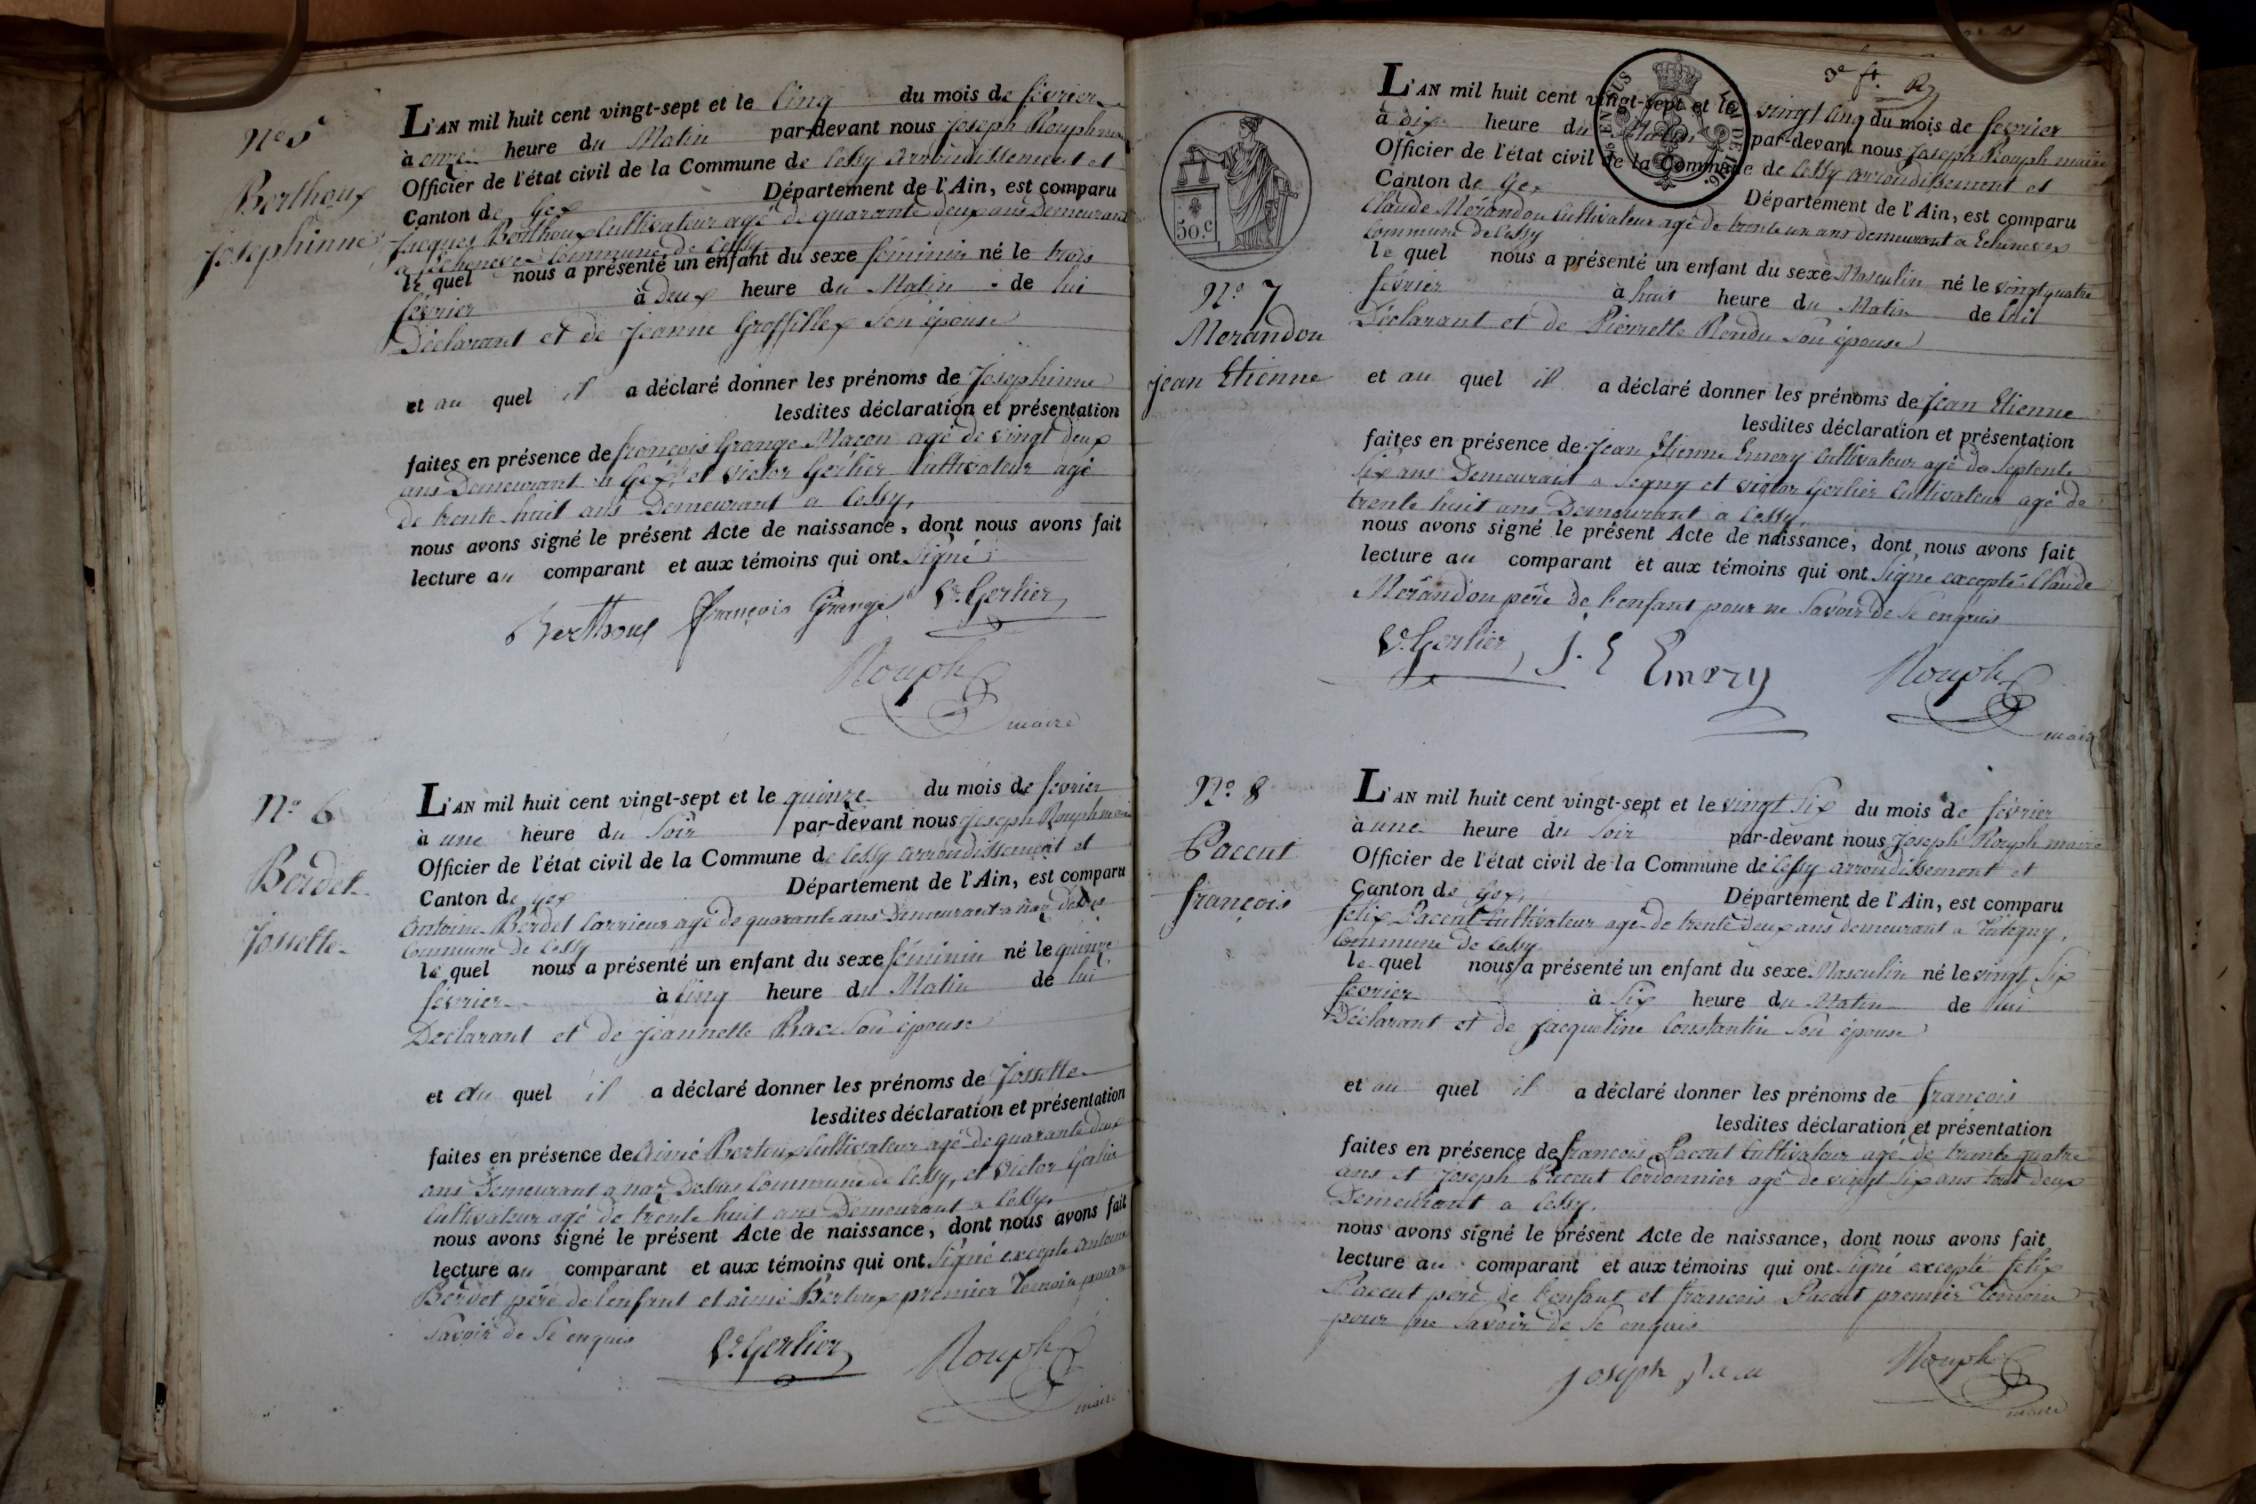 N.o 5
Berthoux
Josephinne
L'AN mil huit cent vingt-sept et le Cinq du mois de février
à onze heure du Matin par-devant nous Joseph Rouph maire
Officier de l'état civil de la Commune de Cessy arrondissement et
Canton de Gex Département de l'Ain, est comparu
Jacques Berthoux Cultivateur agé de quarante deux ans Demeurant
a Echenevex Commune de Cessy
le quel nous a présenté un enfant du sexe féminin né le trois
février à deux heure du Matin de lui
Déclarant et de Jeanne Groffillex Son épouse
et au quel il a déclaré donner les prénoms de Josephinne
lesdites déclaration et présentation
faites en présence de françois Grange Maçon agé de vingt deux
ans Demeurant a Gex et Victor Gerlier Cultivateur agé
de trente huit ans Demeurant a Cessy,
nous avons signé le présent Acte de naissance, dont nous avons fait
lecture au comparant et aux témoins qui ont Signé
Berthoux François Grange V.r Gerlier
Rouph
maire
N.o 6
Berdet
Jossette
L'AN mil huit cent vingt-sept et le quinze du mois de février
à une heure du Soir par-devant nous Joseph Rouph maire
Officier de l'état civil de la Commune de Cessy arrondissement et
Canton de Gex Département de l'Ain, est comparu
Antoine Berdet Carrieur agé de quarante ans Demeurant a Naz dessus
Commune de Cessy
le quel nous a présenté un enfant du sexe féminin né le quinze
février à Cinq heure du Matin de lui
Déclarant et de Jeannette Brac Son épouse
et au quel il a déclaré donner les prénoms de Jossette
lesdites déclaration et présentation
faites en présence de Aimé Bertoux Cultivateur agé de quarante deux
ans Demeurant a naz Dessus Commune de Cessy, et Victor Gerlier
Cultivateur agé de trente huit ans Demeurant a Cessy,
nous avons signé le présent Acte de naissance, dont nous avons fait
lecture au comparant et aux témoins qui ont Signé excepté Antoine
Berdet père de l'enfant et aimé Bertoux premier Temoin pour ne
Savoir de Se enquis
V.r Gerlier Rouph
maire
3e ft.
50.c
N.o 7
Morandon
jean Etienne
L'AN mil huit cent vingt-sept et le vingt Cinq du mois de février
à dix heure du Matin par-devant nous Joseph Rouph maire
Officier de l'état civil de la Commune de Cessy arrondissement et
Canton de Gex Département de l'Ain, est comparu
Claude Morandon Cultivateur agé de trente un ans demeurant a Echenevex
Commune de Cessy
le quel nous a présenté un enfant du sexe Masculin né le vingt quatre
février à huit heure du Matin de lui
Déclarant et de Pierrette Rendu Son épouse
et au quel il a déclaré donner les prénoms de Jean Etienne
lesdites déclaration et présentation
faites en présence de Jean Etienne Emery Cultivateur agé de Septente
Six ans Demeurant a Segny et Victor Gerlier Cultivateur agé de
trente huit ans Demeurant a Cessy,
nous avons signé le présent Acte de naissance, dont nous avons fait
lecture au comparant et aux témoins qui ont Signé excepté Claude
Morandon père de l'enfant pour ne Savoir de Se enquis
V.r Gerlier J. E Emery Rouph
maire
N.o 8
Paccut
françois
L'AN mil huit cent vingt-sept et le vingt Six du mois de février
à une heure du Soir par-devant nous Joseph Rouph maire
Officier de l'état civil de la Commune de Cessy arrondissement et
Canton de Gex, Département de l'Ain, est comparu
felix Paccut Cultivateur agé de trente deux ans demeurant a Tutegny,
Commune de Cessy
le quel nous a présenté un enfant du sexe Masculin né le vingt Six
fevrier à Six heure du Matin de lui
Déclarant et de Jacqueline Constantin Son épouse
et au quel il a déclaré donner les prénoms de françois
lesdites déclaration et présentation
faites en présence de francois Paccut Cultivateur agé de trente quatre
ans et Joseph Paccut Cordonnier agé de vingt Six ans tout deux
Demeurant a Cessy.
nous avons signé le présent Acte de naissance, dont nous avons fait
lecture au comparant et aux témoins qui ont Signé excepté felix
Paccut père de l'enfant et francois Paccut premier Temoin
pour ne Savoir de Se enquis
Joseph Rouph
maire